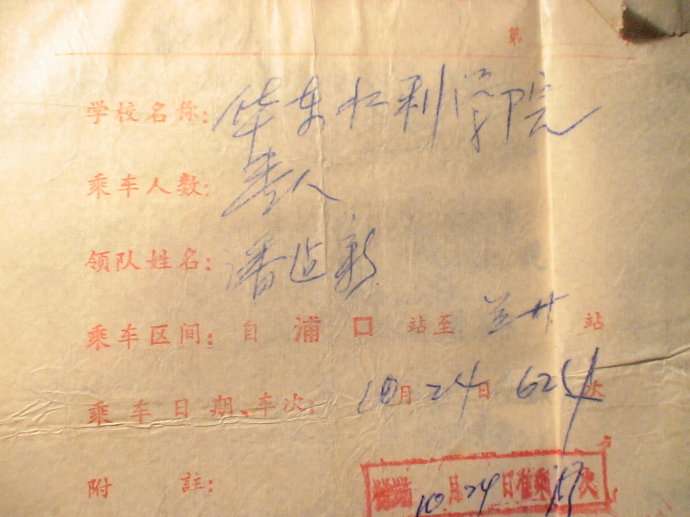 第
学校名称：华东水利学院
乘车人数：壹人
领队姓名：潘
乘车区间：自 浦 口 站至 兰州 站
乘车日期、车次：10月24日 624次
附 註：
10月24日准乘 次